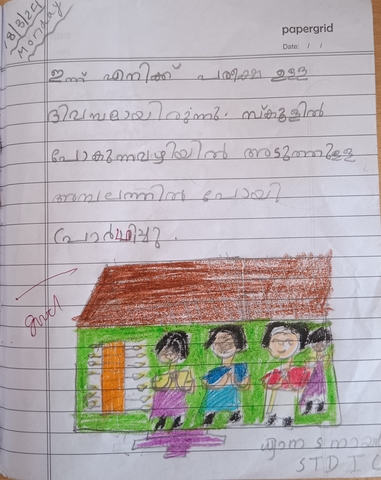 18/3/24
Monday
papergrid
Date: / /
ഇന്ന് എനിക്ക് പരീക്ഷ ഉള്ള
ദിവസമായിരുന്നു. സ്കൂളിൽ
പോകുന്നവഴിയിൽ അടുത്തുള്ള
അമ്പലത്തിൽ പോയി
പ്രാർത്ഥിച്ചു.
STD I C